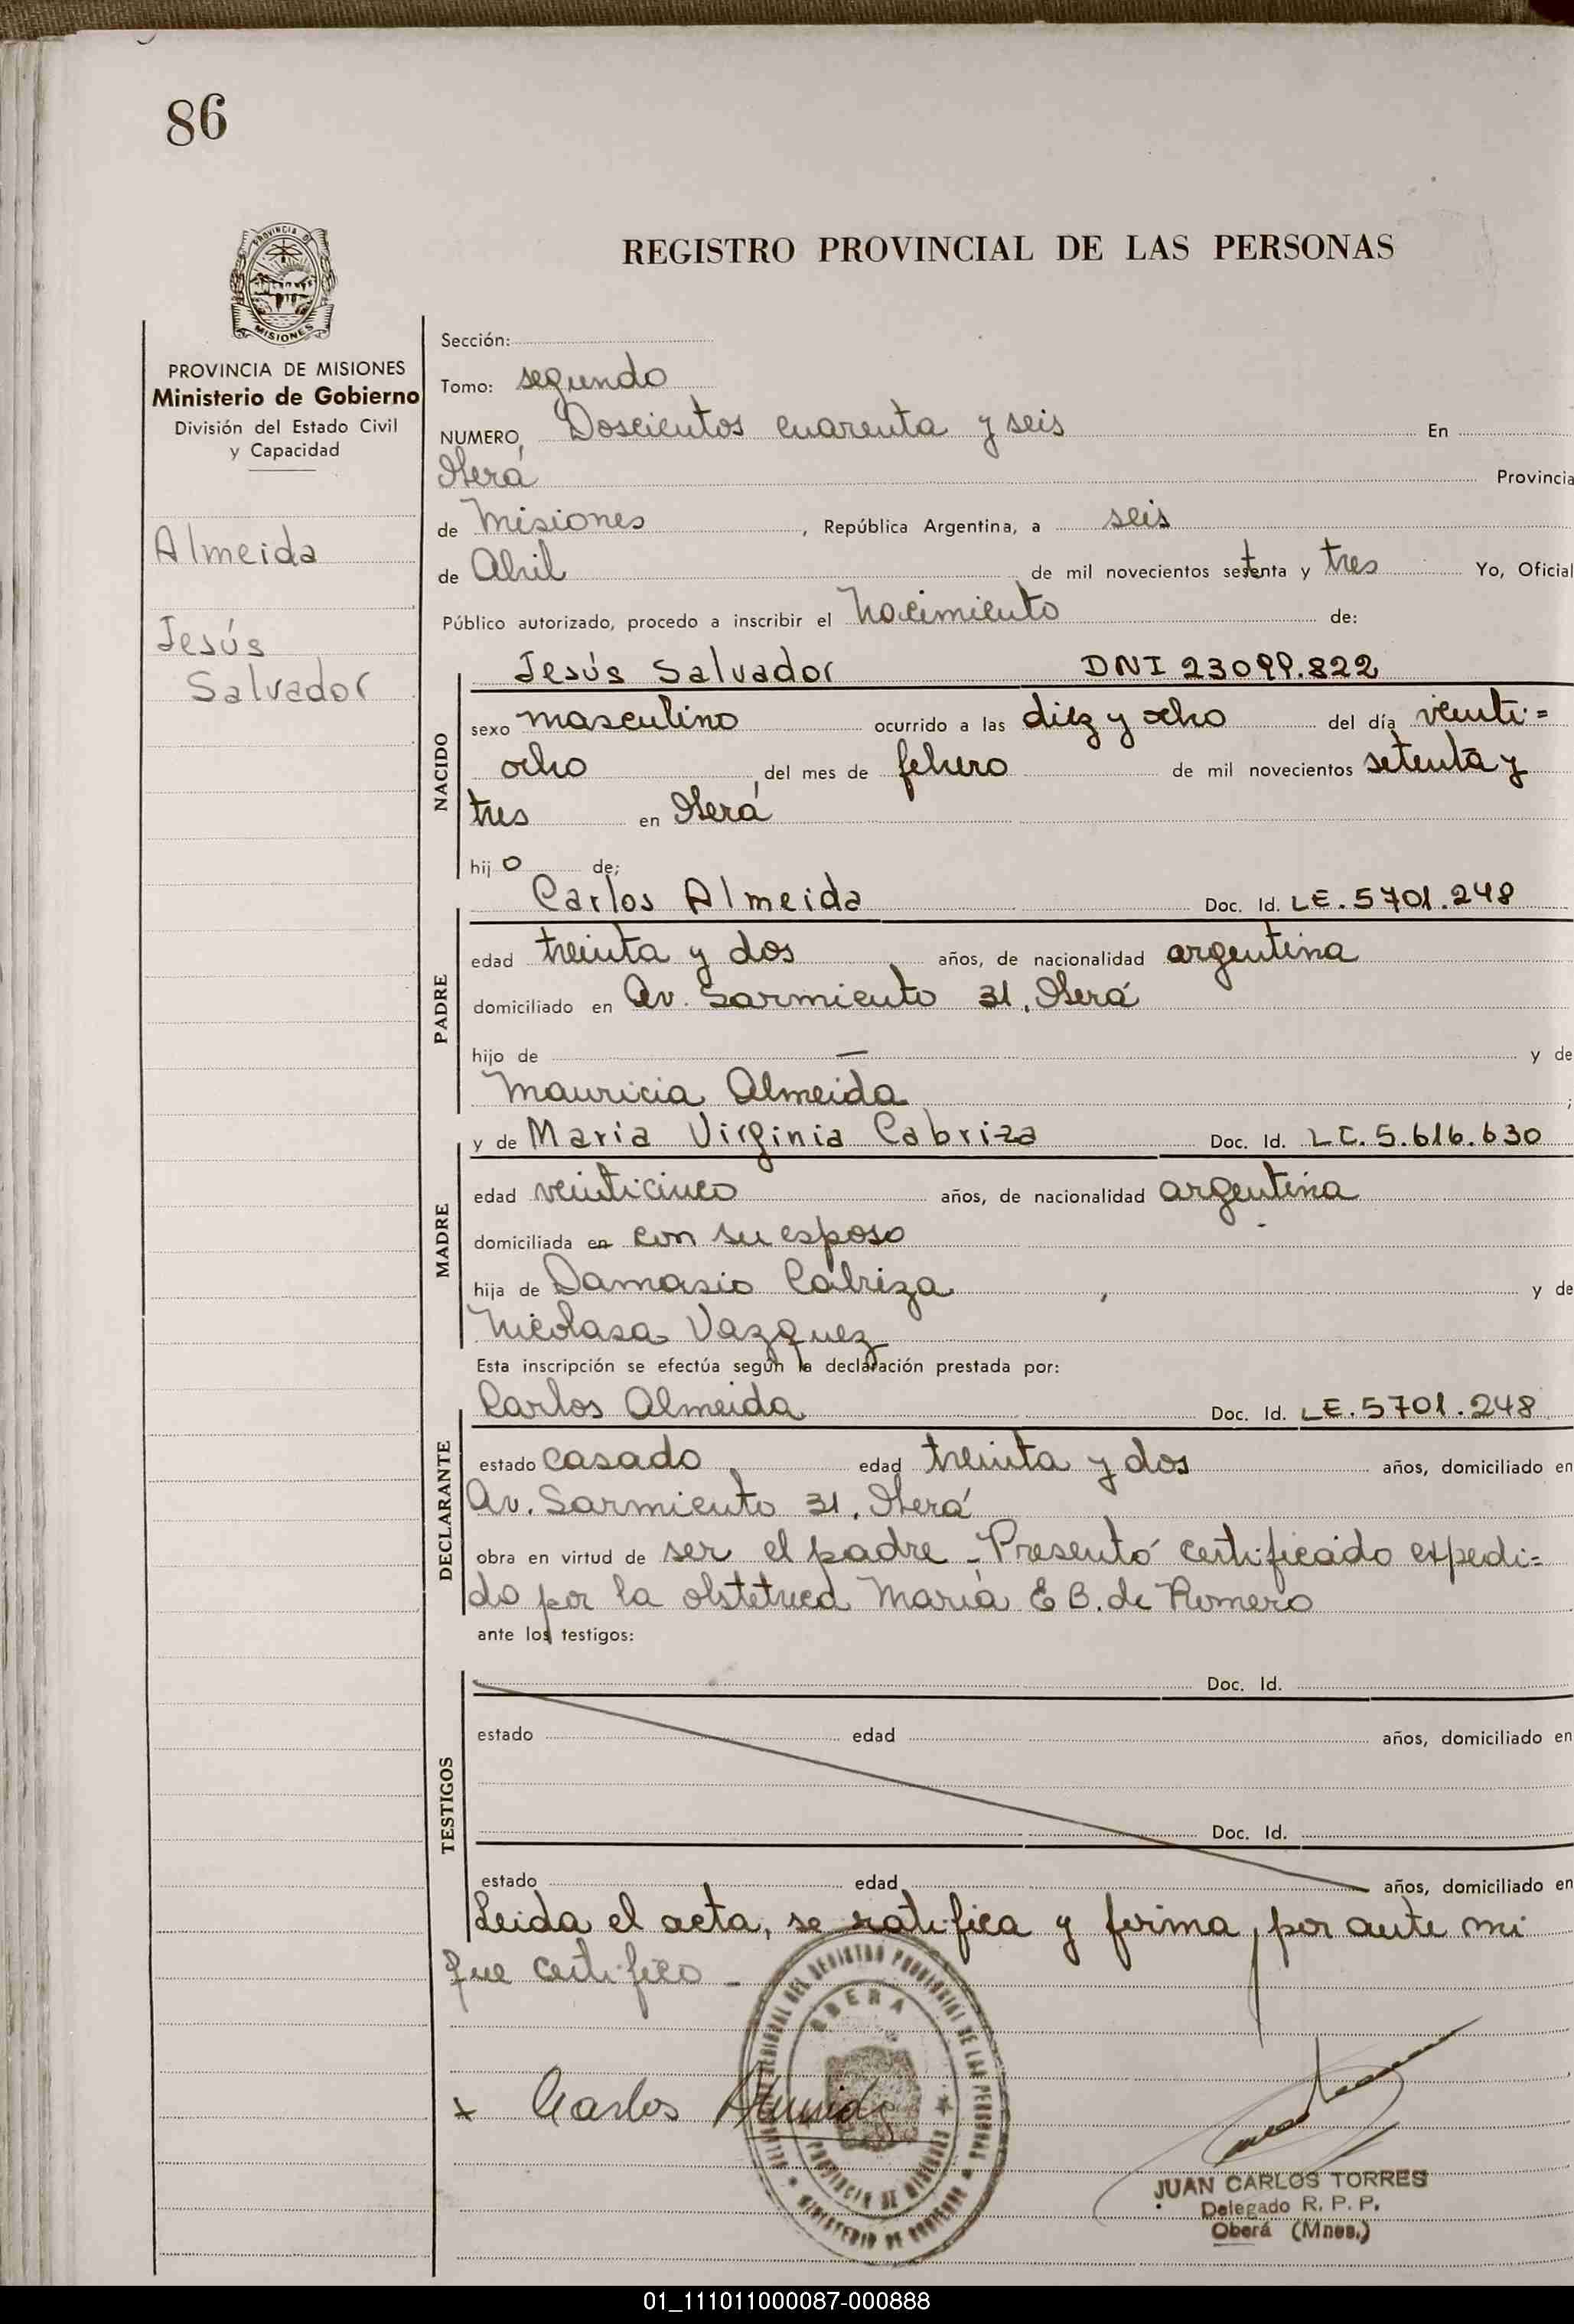 86
PROVINCIA DE
MISIONES
REGISTRO PROVINCIAL DE LAS PERSONAS
PROVINCIA DE MISIONES
Ministerio de Gobierno
División del Estado Civil
y Capacidad
Almeida
Jesús
Salvador
Sección:
Tomo: segundo
NUMERO Doscientos cuarenta y seis En
Oberá Provincia
de Misiones, República Argentina, a seis
de Abril de mil novecientos setenta y tres Yo, Oficial
Público autorizado, procedo a inscribir el nacimiento de:
NACIDO
Jesús Salvador DNI 23099.822
sexo masculino ocurrido a las diez y ocho del día veinti=
ocho del mes de febrero de mil novecientos setenta y
tres en Oberá
hijo de;
PADRE
Carlos Almeida Doc. Id. LE. 5701.248
edad treinta y dos años, de nacionalidad argentina
domiciliado en Av. Sarmiento 31, Oberá
hijo de — y de
Mauricia Almeida ;
MADRE
y de María Virginia Cabriza Doc. Id. LC. 5.616.630
edad veinticinco años, de nacionalidad argentina
domiciliada en con su esposo
hija de Damasio Cabriza, y de
Nicolasa Vazquez
Esta inscripción se efectúa según la declaración prestada por:
DECLARANTE
Carlos Almeida Doc. Id. LE. 5701.248
estado casado edad treinta y dos años, domiciliado en
Av. Sarmiento 31, Oberá
obra en virtud de ser el padre - Presentó certificado expedi=
do por la obstetrica María E B. de Romero
ante los testigos:
TESTIGOS
Doc. Id.
estado edad años, domiciliado en
Doc. Id.
estado edad años, domiciliado en
Leida el acta, se ratifica y firma, por ante mi
que certifico -
REGIONAL DEL REGISTRO PROVINCIAL DE LAS PERSONAS
OBERA
PROVINCIA DE MISIONES
MINISTERIO DE GOBIERNO
x Carlos Almeida
JUAN CARLOS TORRES
Delegado R. P. P.
Oberá (Mnes.)
01_111011000087-000888